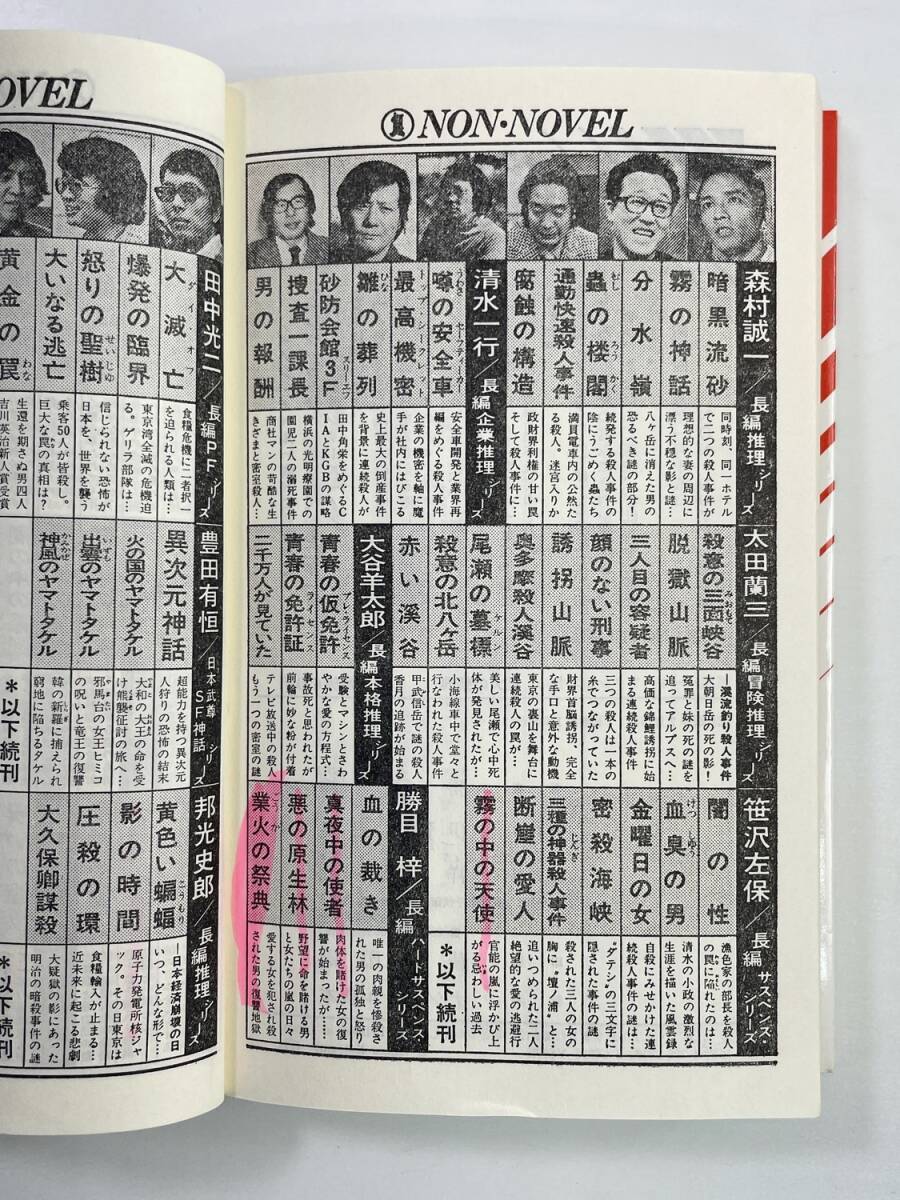 NON・NOVEL
森村誠一/長編推理シリーズ
暗黒流砂
同時刻、同一ホテル
で二つの殺人事件が
霧の神話
理想的な妻の周辺に
漂う不穏な影と謎…
分水嶺
八ヶ岳に消えた男の
恐るべき謎の部分!
蟲の楼閣
続発する殺人事件の
陰にうごめく蟲たち
通勤快速殺人事件
満員電車内の公然た
る殺人。迷宮入りか
腐蝕の構造
政財界利権の甘い罠
そして殺人事件に…
清水一行/長編企業推理シリーズ
噂の安全車
安全車開発と業界再
編をめぐる殺人事件
最高機密
企業の機密を軸に魔
手が社内にはびこる
雛の葬列
史上最大の倒産事件
を背景に連続殺人が
砂防会館3F
田中角栄をめぐるC
IAとKGBの謀略
捜査一課長
横浜の光明療園での
園児二人の溺死事件
男の報酬
商社マンの苛酷な生
きざまと密室殺人…
太田蘭三/長編冒険推理シリーズ
殺意の三面峡谷
―渓流釣り殺人事件
大朝日岳の死の影!
脱獄山脈
冤罪と妹の死の謎を
追ってアルプスへ…
三人目の容疑者
高価な錦鯉誘拐に始
まる連続殺人事件…
顔のない刑事
三つの殺人は一本の
糸でつながっていた
誘拐山脈
財界首脳誘拐、完全
な手口と意外な動機
奥多摩殺人渓谷
東京の裏山を舞台に
連続殺人の罠が…
尾瀬の墓標
美しい尾瀬で心中死
体が発見されたが…
殺意の北八ヶ岳
小海線車中で堂々と
行なわれた殺人事件
赤い渓谷
甲武信岳で謎の殺人
香月の追跡が始まる
大谷羊太郎/長編本格推理シリーズ
青春の仮免許
受験とマシンとさわ
やかな愛の方程式…
青春の免許証
事故死と思われたが
前輪に妙な粉が付着
二千万人が見ていた
テレビ放送中の殺人
もう一つの密室の謎
笹沢左保/長編サスペンス・シリーズ
闇の性
漁色家の部長を殺人
の罠に陥れたのは…
血臭の男
清水の小政の激烈な
生涯を描いた風雲録
金曜日の女
自殺にみせかけた連
続殺人事件の謎は…
密殺海峡
“ダテシ”の三文字に
隠された事件の謎…
三種の神器殺人事件
殺された三人の女の
胸に“壇ノ浦”と…
断崖の愛人
追いつめられた二人
絶望的な愛の逃避行
霧の中の天使
官能の嵐に浮かび上
がる忌わしい過去
*以下続刊
勝目梓/長編ハードサスペンスシリーズ
血の裁き
唯一の肉親を惨殺さ
れた男の孤独と怒り
真夜中の使者
肉体を賭けた女の復
讐が始まった……
悪の原生林
野望に命を賭ける男
と女たちの嵐の日々
業火の祭典
愛する女を凌辱され殺
された男の復讐地獄
OVEL
田中光二/長編PFシリーズ
大滅亡
食糧危機に二者択一
を迫られる人類は…
爆発の臨界
東京湾全滅の危機迫
る。ゲリラ部隊は…
怒りの聖樹
信じられない恐怖が
日本を、世界を襲う
大いなる逃亡
乗客50人が皆殺し。
巨大な罠の真相は?
黄金の罠
生還を期さぬ男四人
吉川英治新人賞受賞
豊田有恒/日本武尊SF神話シリーズ
異次元神話
超能力を持つ異次元
人狩りの恐怖の結末
火の国のヤマトタケル
大和の大王の命を受
け熊襲征討の旅へ…
出雲のヤマトタケル
邪馬台の女王ヒミコ
の呪いと竜王の復讐
神風のヤマトタケル
韓の新羅に捕えられ
窮地に陥ちるタケル
*以下続刊
邦光史郎/長編推理シリーズ
黄色い蝙蝠
―日本経済崩壊の日
いつ、どんな形で…
影の時間
原子力発電所核ジャ
ック。その日東京は
圧殺の環
食糧輸入が止まる…
近未来に起こる悲劇
大久保卿謀殺
大疑獄の影にあった
明治の暗殺事件の謎
*以下続刊